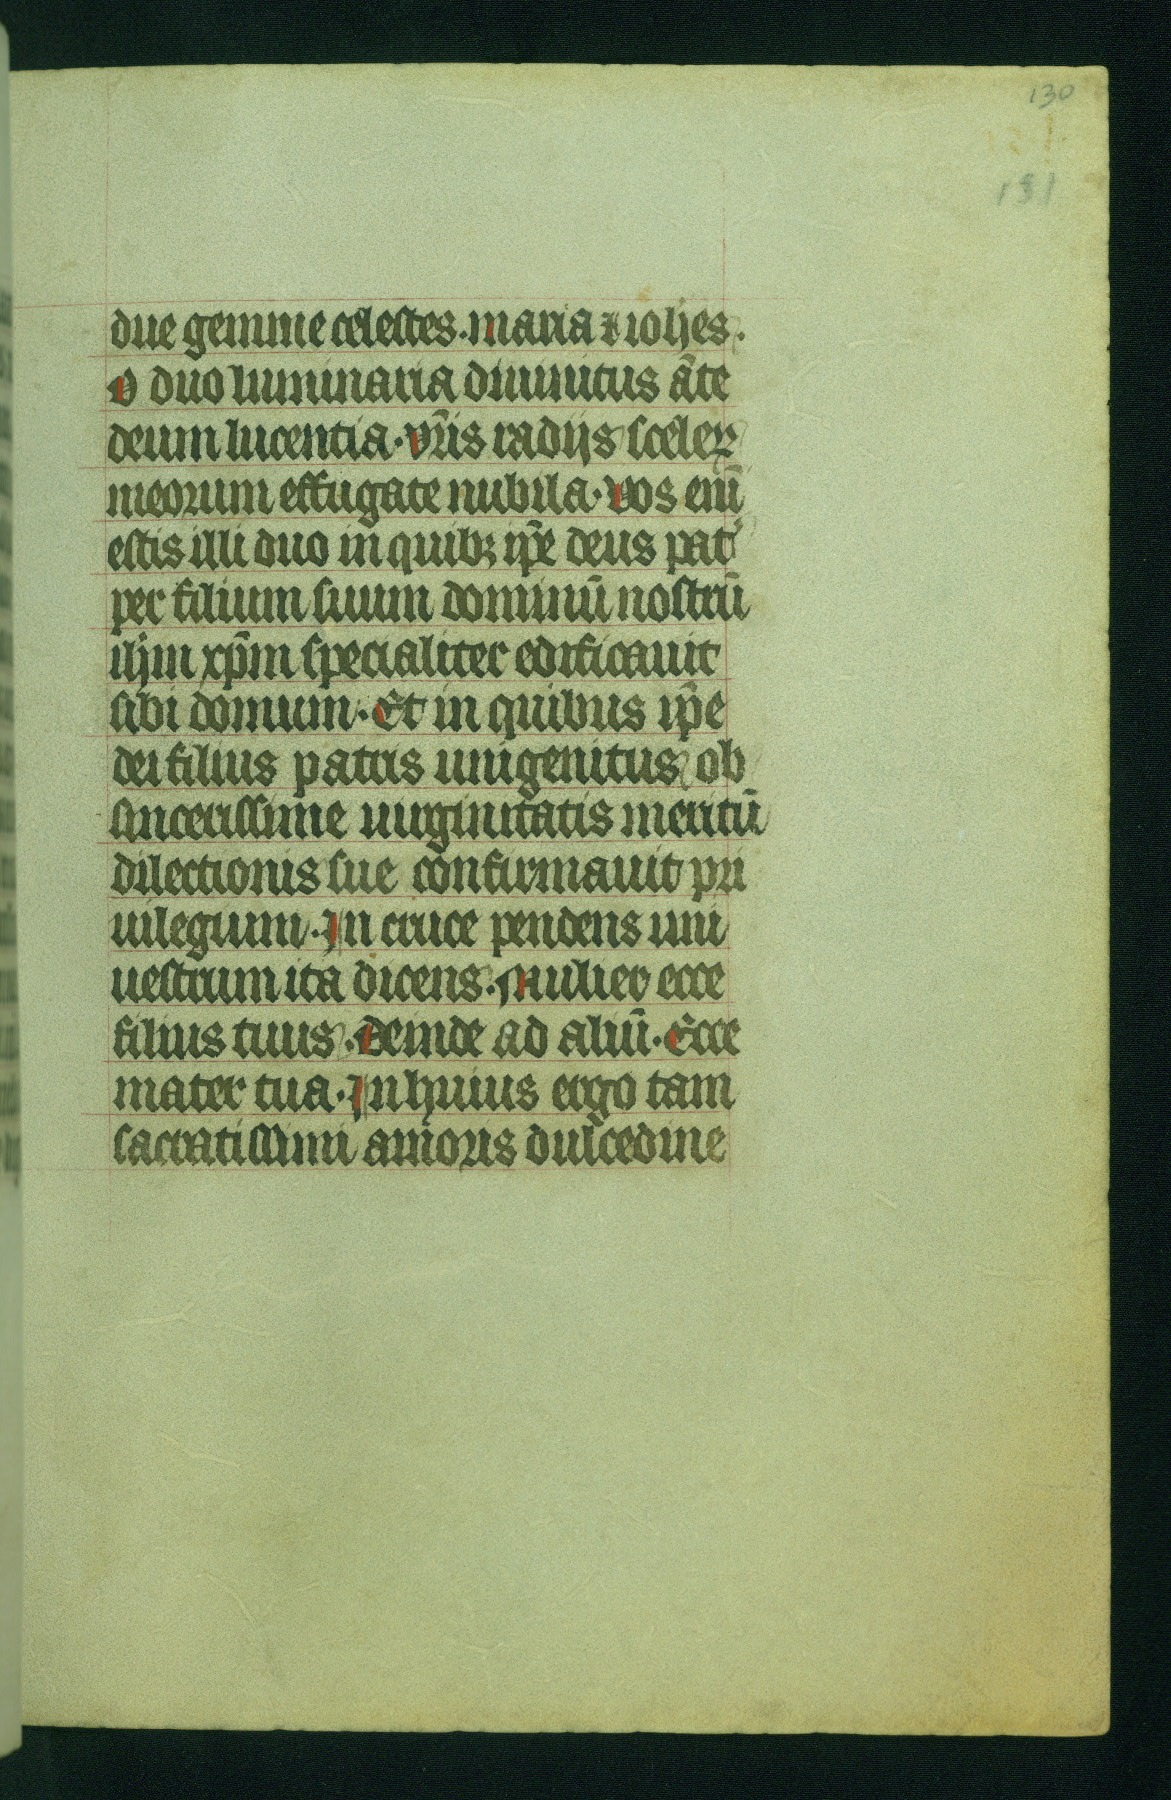 130
131
due gemme celestes. maria ⁊ ioħes.
O duo luminaria diuinitus ãte
deum lucentia. vr̃is radijs scelerꝝ
meorum effugate nubila. Vos enĩ
estis illi duo in quibꝫ ip̃e deus pat̾
per filium suum dominũ nostrũ
iħm xp̃m specialiter edificauit
sibi domum. Et in quibus ip̃e
dei filius patris unigenitus ob
sincerissime uirginitatis meritũ
dilectionis sue confirmauit pri
uilegium. In cruce pendens uni
uestrum ita dicens. Mulier ecce
filius tuus. Deinde ad aliũ. Ecce
mater tua. In huius ergo tam
sacratissimi amoris dulcedine